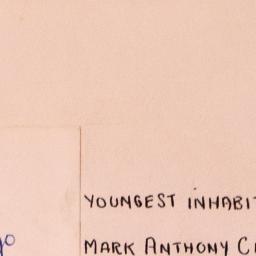 YOUNGEST INHABI
MARK ANTHONY C